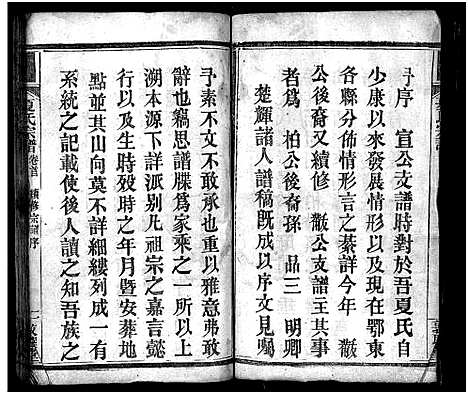 予序　宣公支譜時對於吾夏氏自
少康以來發展情形以及現在鄂東
各縣分佈情形言之綦詳今年　㪚
公後裔又續修　㪚公支譜主其事
者爲　柏公後裔孫　品三　明卿
楚輝諸人譜稿旣成以序文見囑
予素不文不敢承也以雅意弗敢
辭也竊思譜牒爲家乘之一所以上
溯本源下詳派别凡祖宗之嘉言懿
行以及生時殁時之年月暨安葬地
點並其山向莫不詳細縷列成一有
系統之記載使後人讀之知吾族之
夏氏宗譜　卷首　續修宗譜序　一